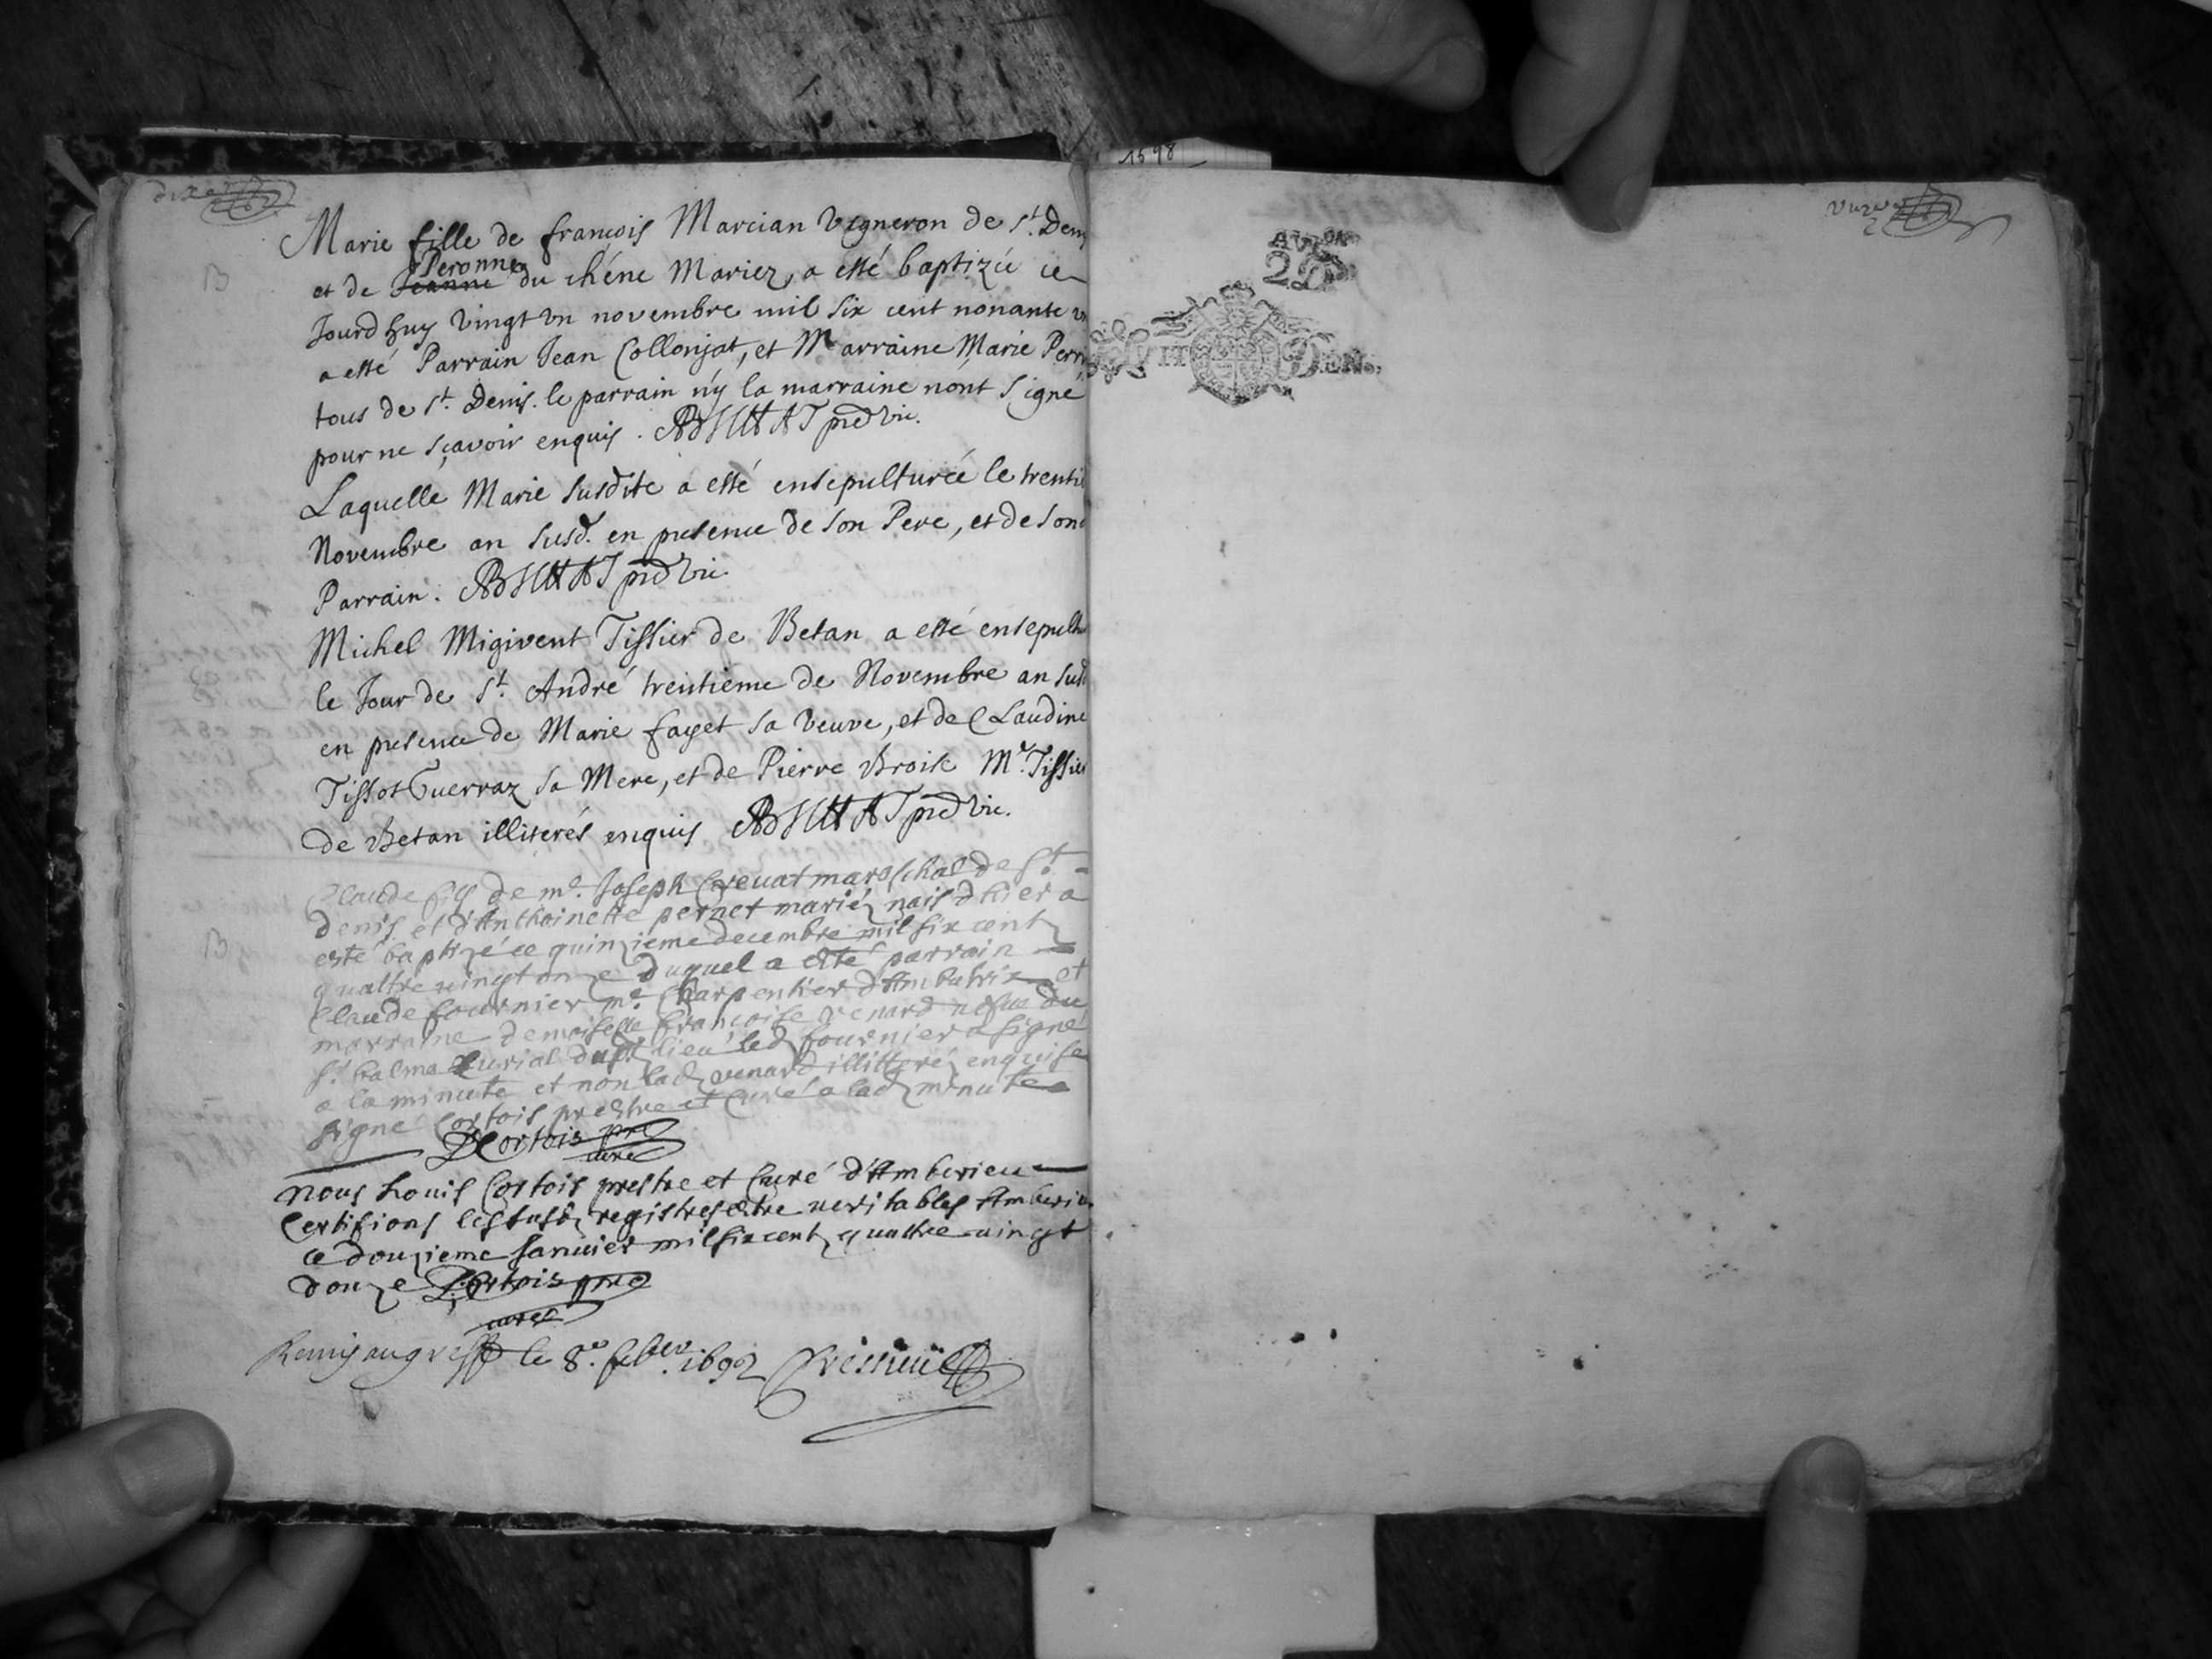 1598
B
Marie fille de françois Marcian Vigneron de St. Denis
Peronne
et de Jeanne du chéne Mariez, a esté baptizée ce
Jourdhuy vingt vn novembre mil six cent nonante vn
a esté Parrain Jean Collonjat, et Marraine Marie
tous de St. Denis. le parrain n'y la marraine n'ont signé
pour ne sçavoir enquis.
Laquelle Marie susdite a esté ensepulturée le
Novembre an susd. en presence de son Pere, et de son
Parrain.
Michel Migivent Tissier de Betan a esté
le Jour de St. André trentieme de Novembre an susd
en presence de Marie fayet sa veuve, et de Claudine
Tissot Guerraz sa Mere, et de Pierre Broise Me. Tissier
de Betan illiterés enquis
Claude fils de me. Joseph Crevat mareschal de St.
B
denis et d'Anthoinette pernet mariéz nais dhier a
esté baptizé ce quinzieme decembre mil six centz
quattre vingt onze duquel a esté parrain
Claude fournier me. Charpentier et
marraine demoiselle françoise venard du
Sr. balma Curial lieu led fournier a signé
a la minute et non lad venard illitteréz enquise
signé Cortois prestre et Curé a lad minute
LCortois pre
curé
nous Louis Cortois prestre et Curé d'Amberieu
Certifions les susd registres estre veritables Amberieu
ce douzieme Janvier mil six centz quattre vingt
douze LCortois pre
curé
Remis au greffe le 8e. 1692
AV
2D